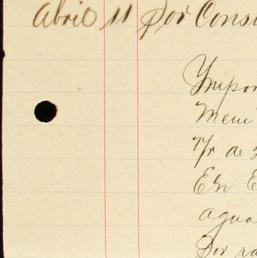 Abril 11 Por Cons
Impor
Mem
En E
agua
Por ra